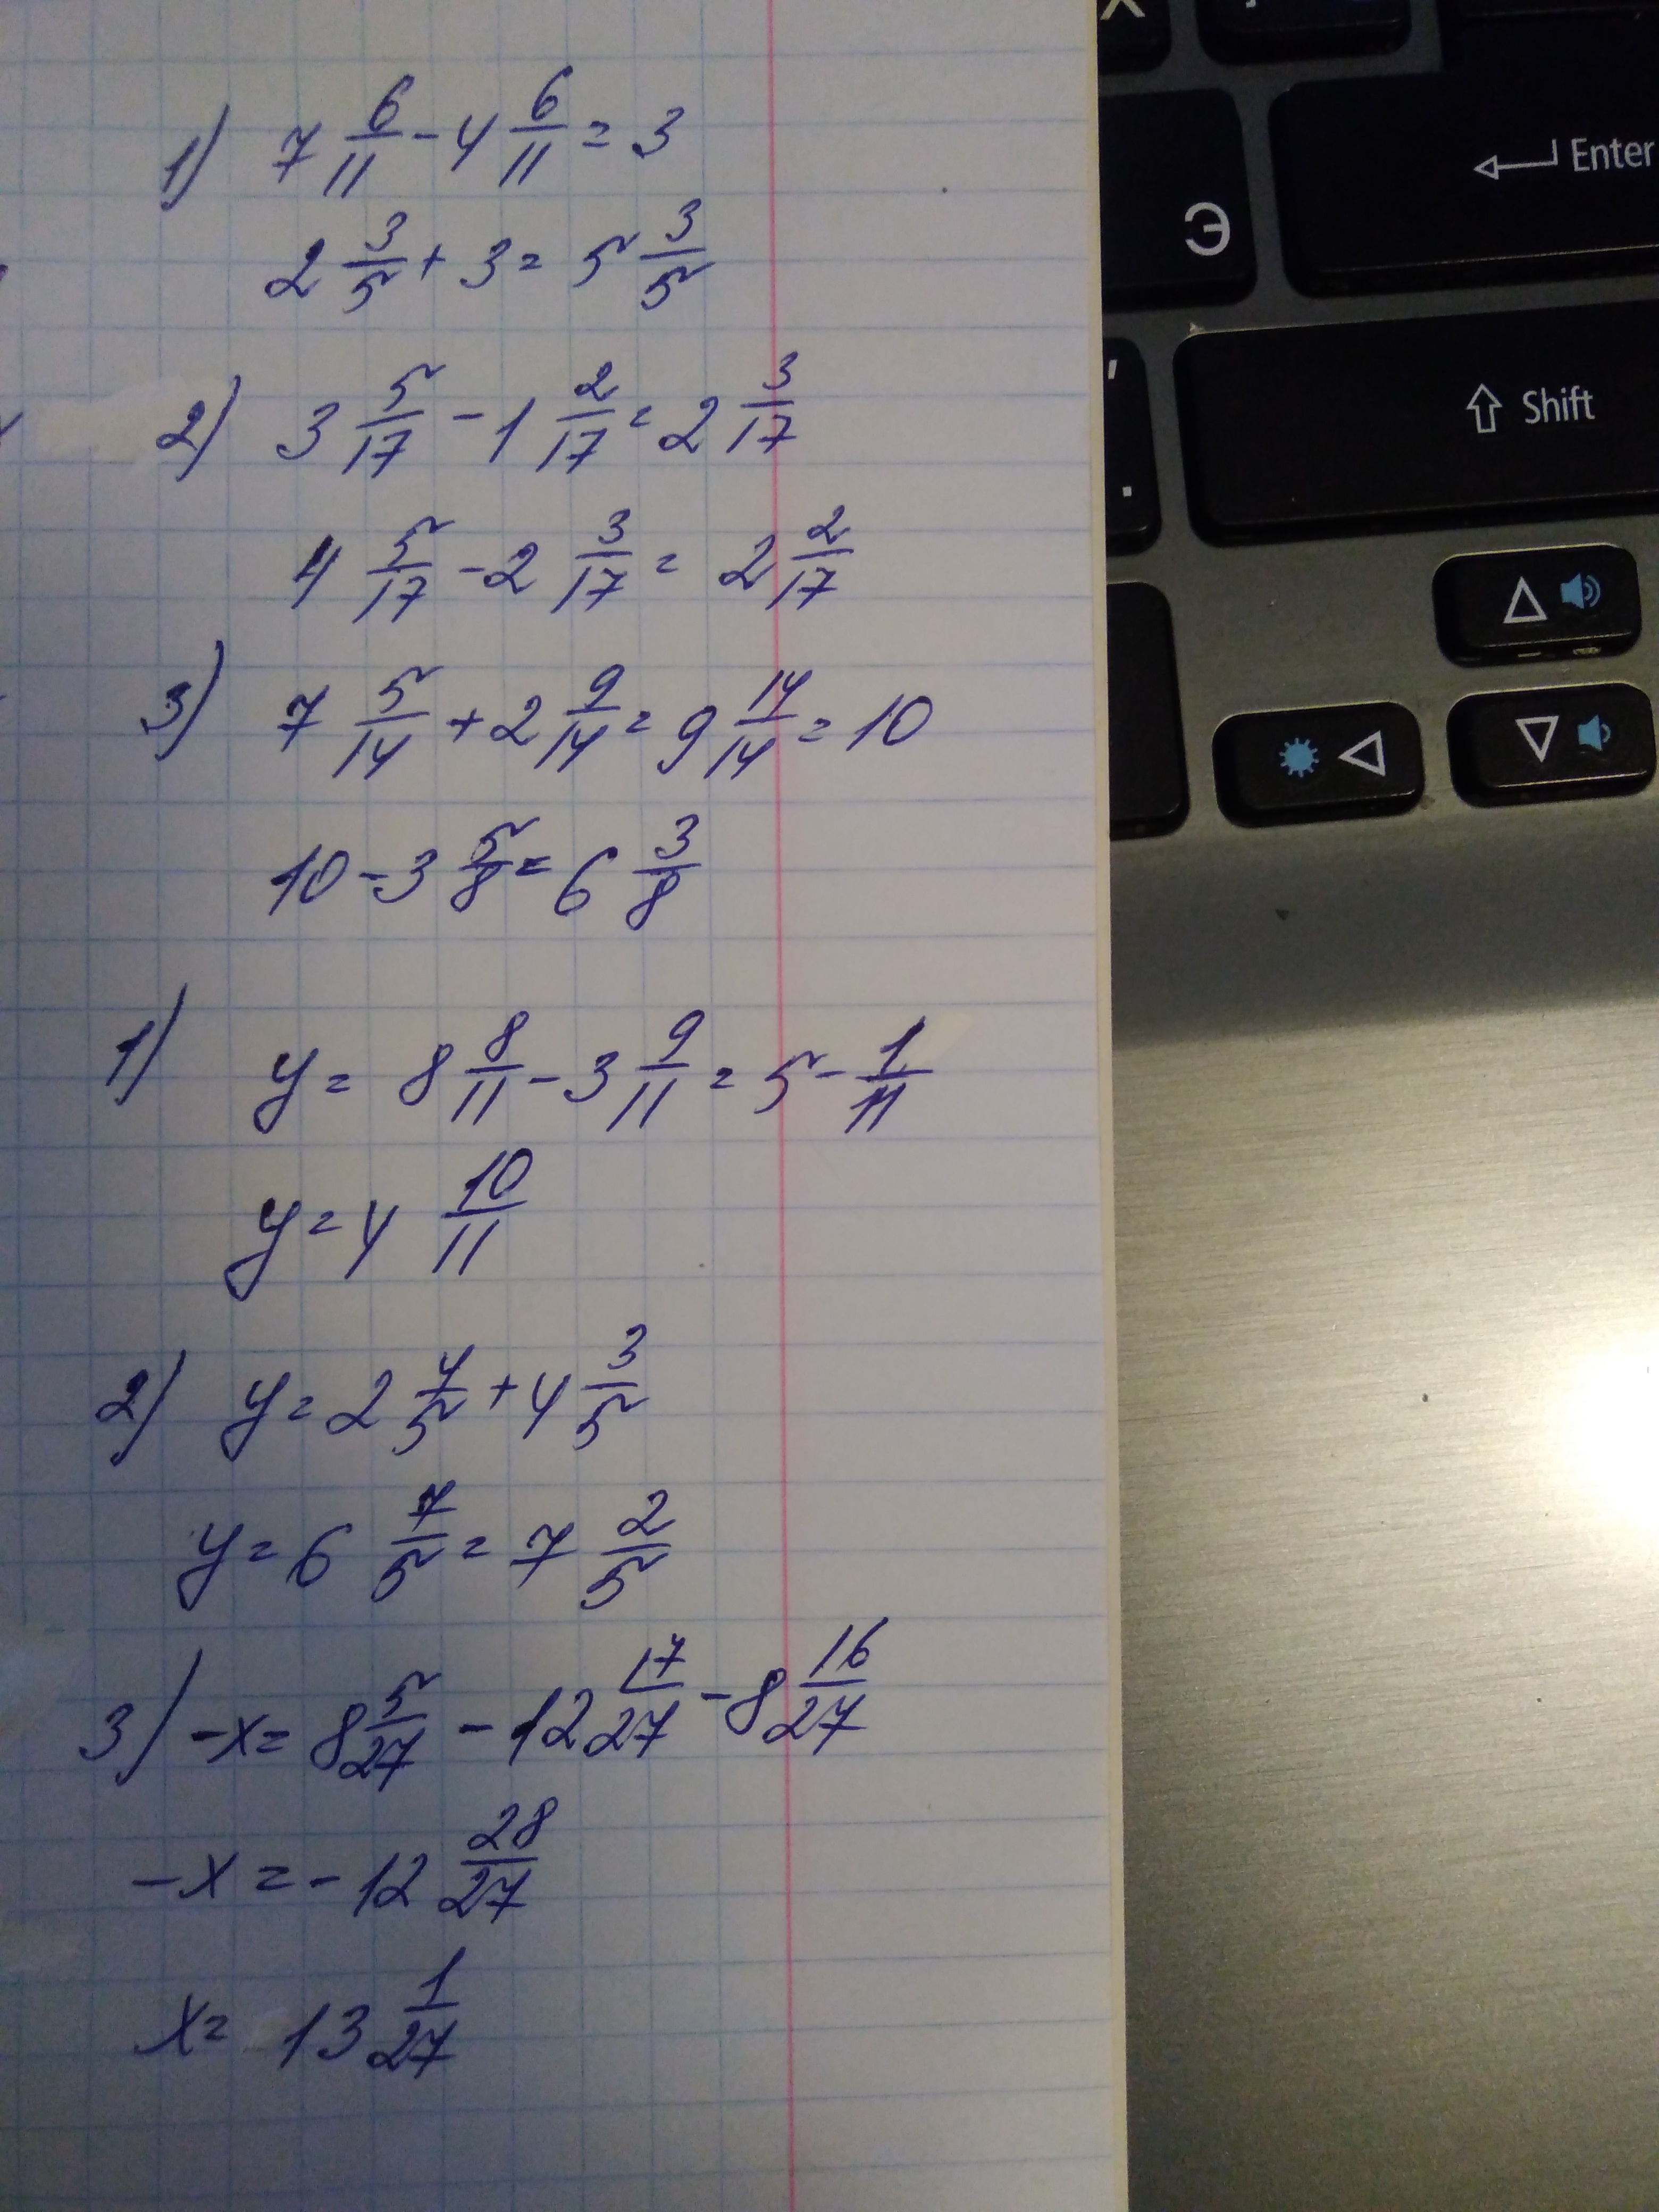 1) 7 6/11 - 4 6/11 = 3
2 3/5 + 3 = 5 3/5
2) 3 5/17 - 1 2/17 = 2 3/17
4 5/17 - 2 3/17 = 2 2/17
3) 7 5/14 + 2 9/14 = 9 14/14 = 10
10 - 3 5/8 = 6 3/8
1) y = 8 8/11 - 3 9/11 = 5 - 1/11
y = 4 10/11
2) y = 2 4/5 + 4 3/5
y = 6 7/5 = 7 2/5
3) -x = 8 5/27 - 12 17/27 - 8 16/27
-x = - 12 28/27
x = 13 1/27
Enter
Э
Shift